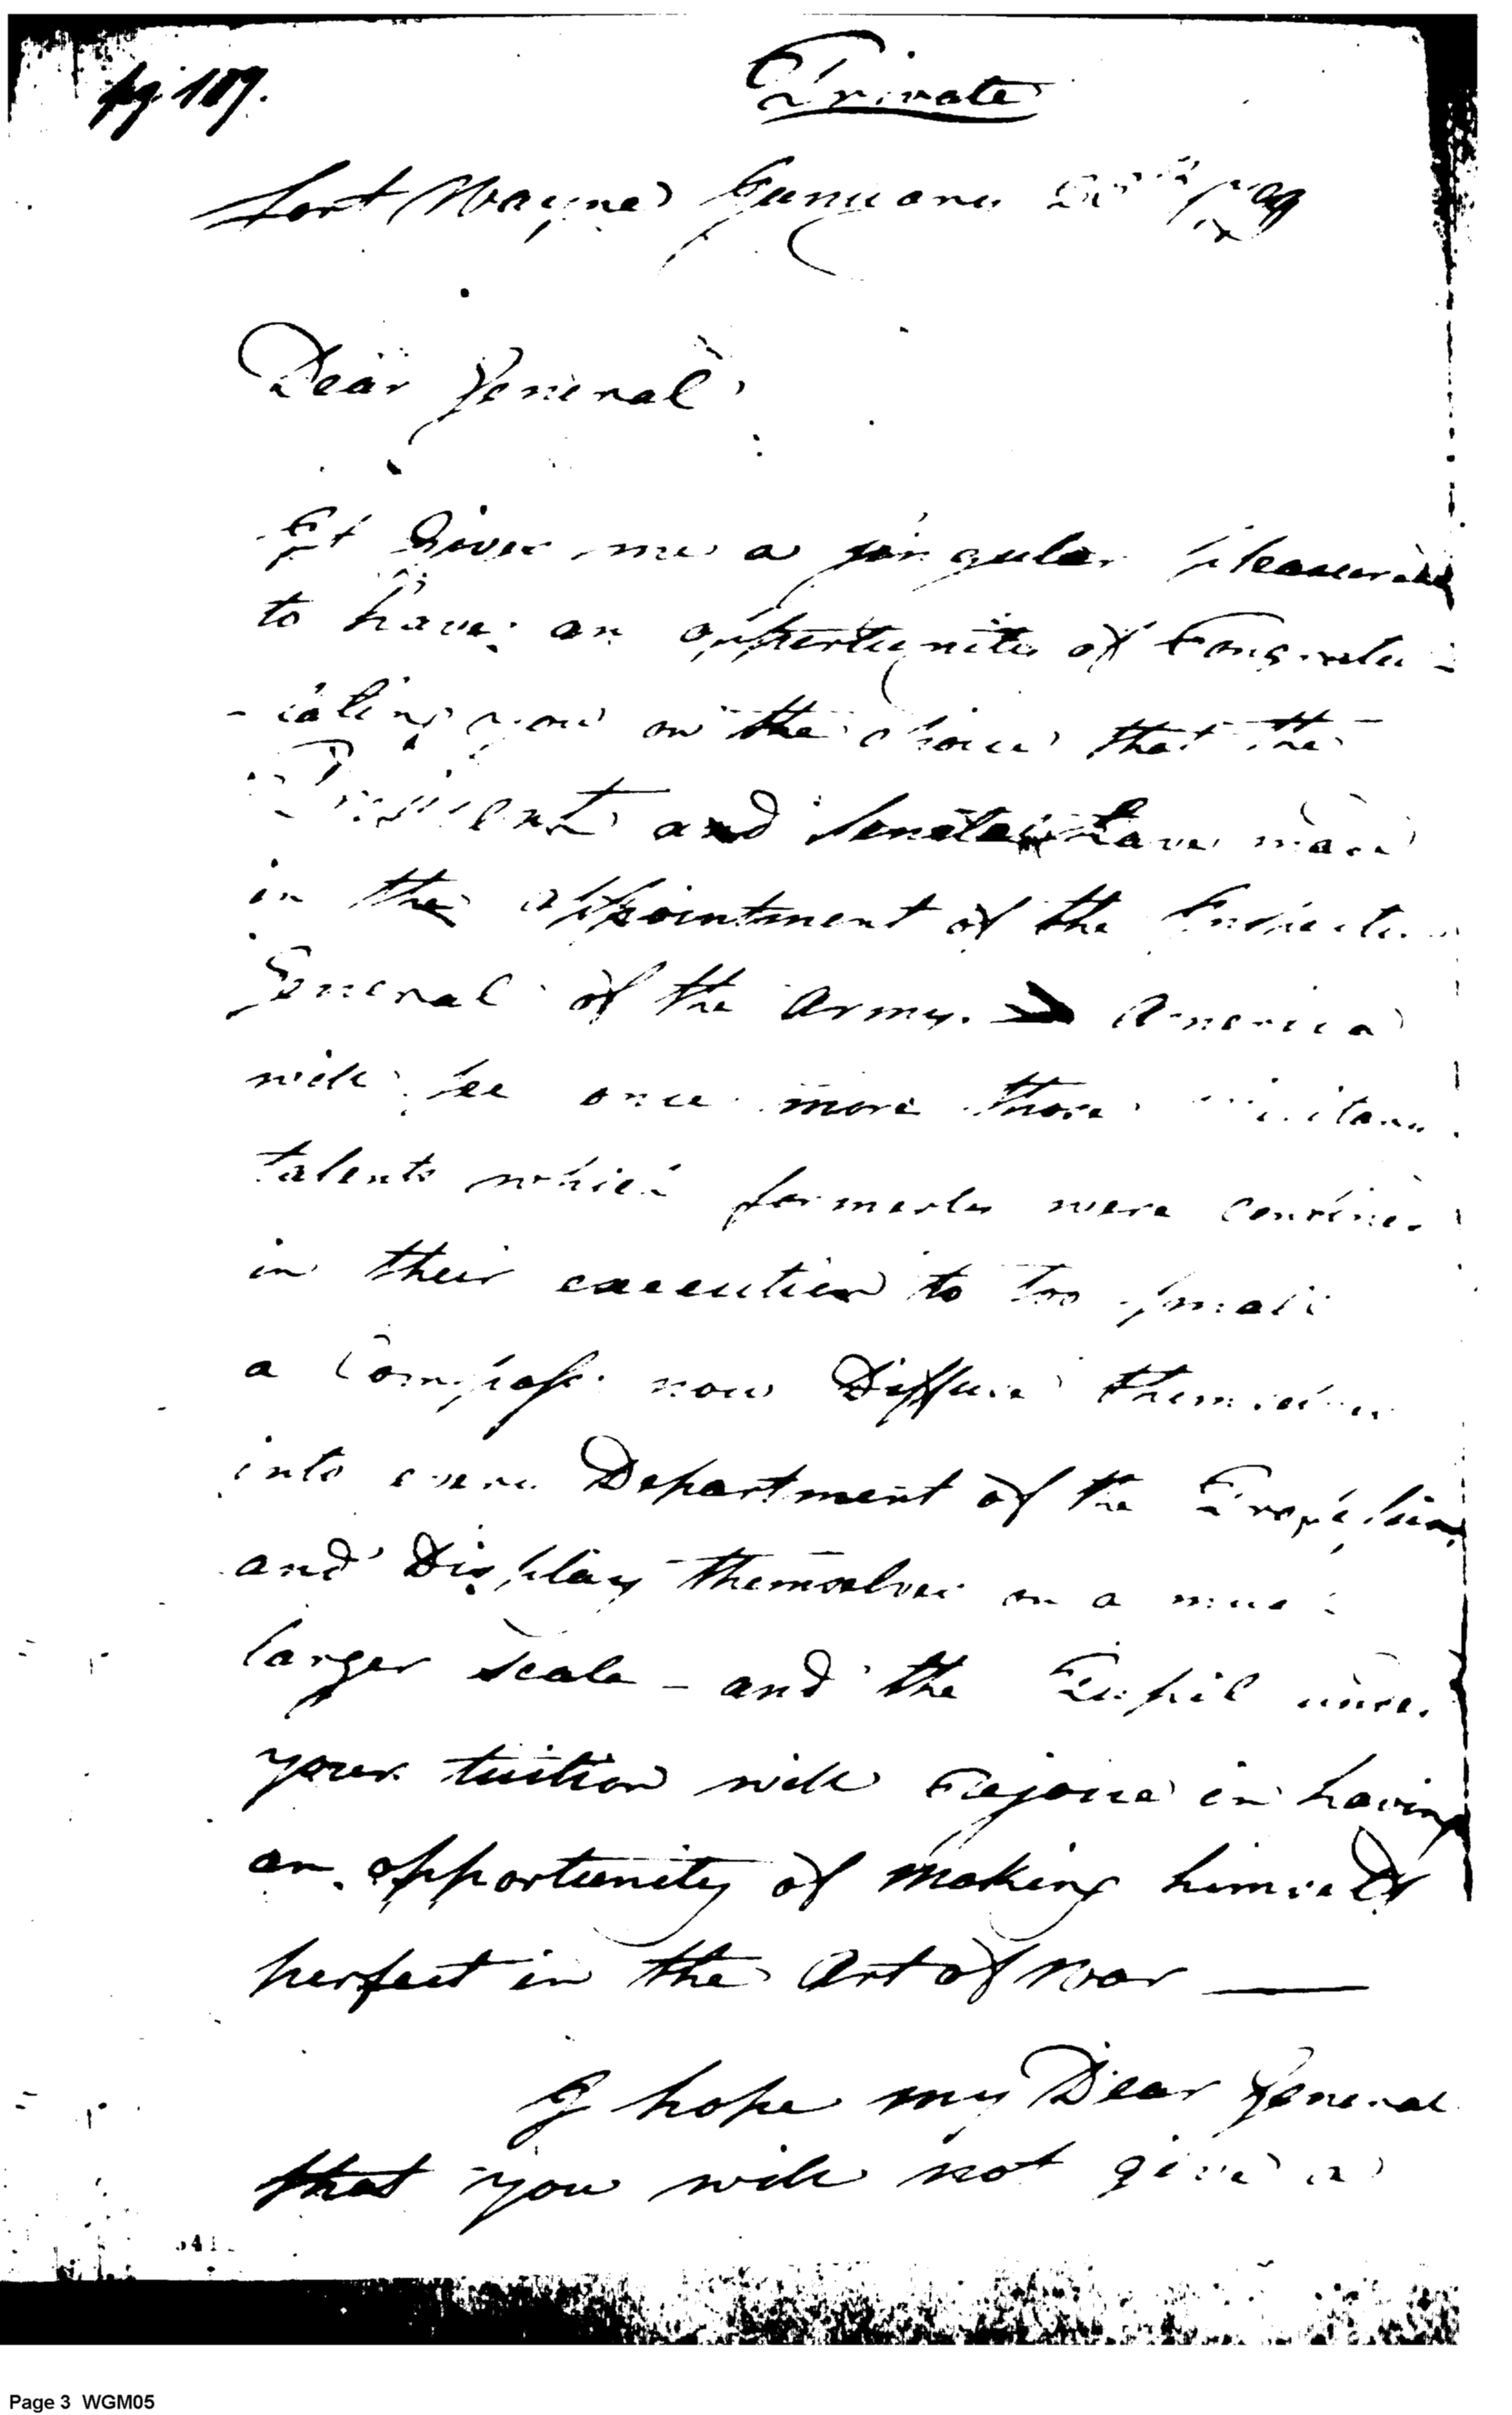 pg 109.
Private
Fort Wayne January
Dear General
It Gives me a singular pleasure
to have an oppertunity of Congratu-
-lating you on the choice that the
President and Senate have made
in the appointment of the Inspector
General of the Army. America
will see once more those Military
talents which formerly were confined
in their execution to too small
a Compass now Diffuse themselves
into every Department of the Profession
and Display themselves on a much
larger scale - and the Pupil under
your tuition will Rejoice in having
an opportunity of making himself
perfect in the Art of War —
I hope my Dear General
that you will not give a
Page 3 WGM05